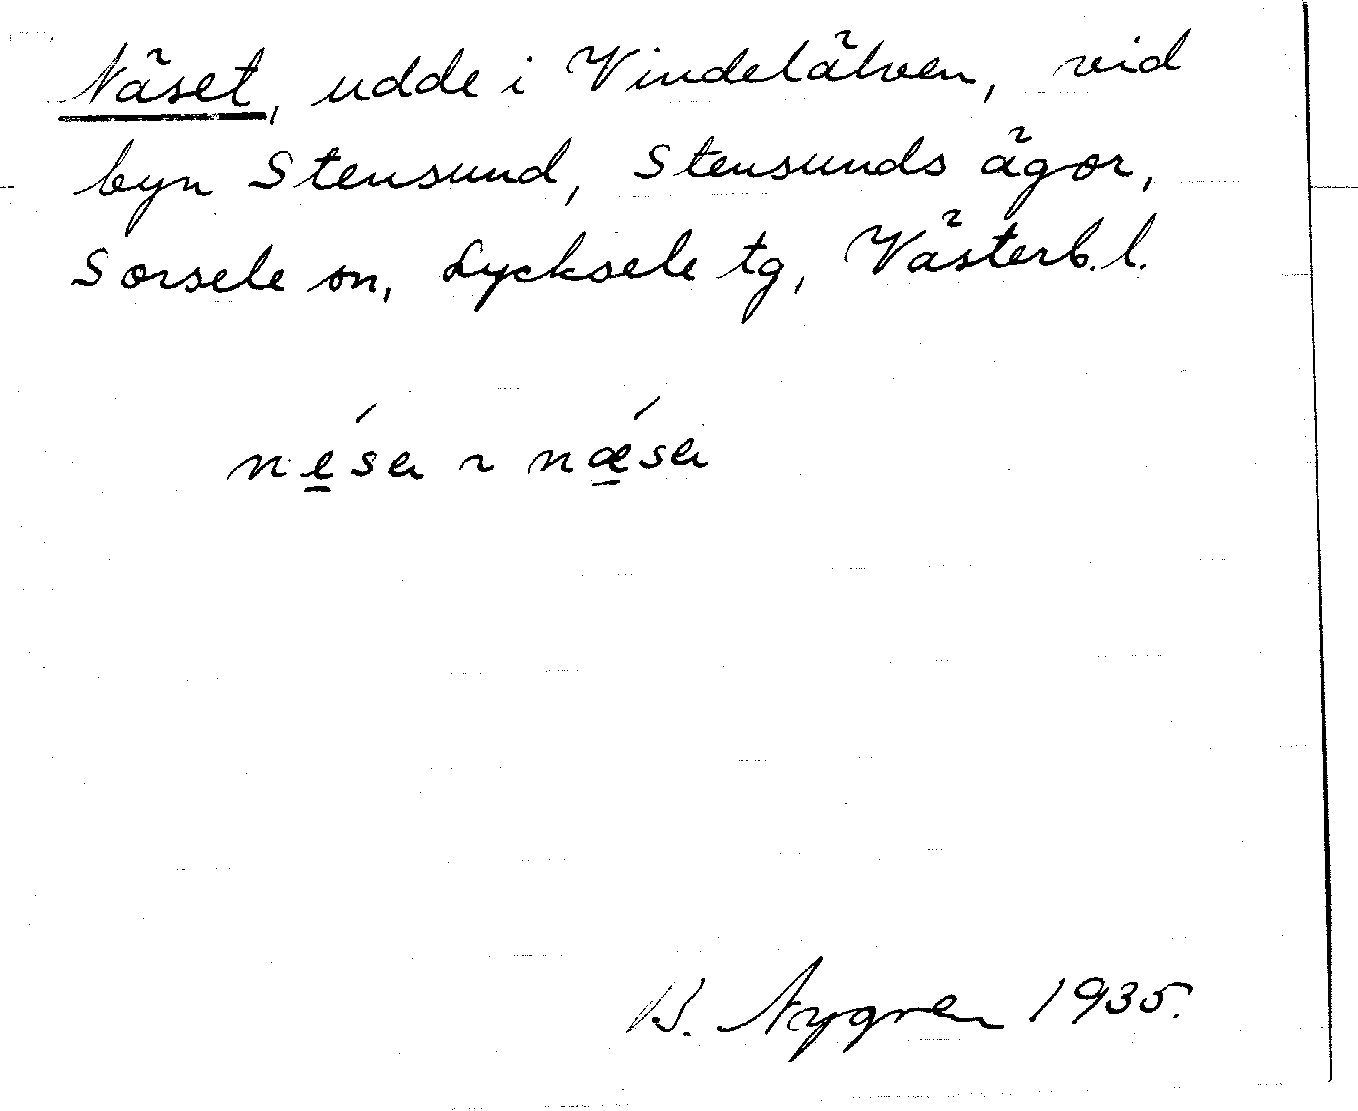 Näset, udde i Vindelälven, vid
byn Stensund, Stensunds ägor,
Sorsele sn, Lycksele tg, Västerb. l.
né̱sa ~ nǽ̱sa
B. Nygren 1935.